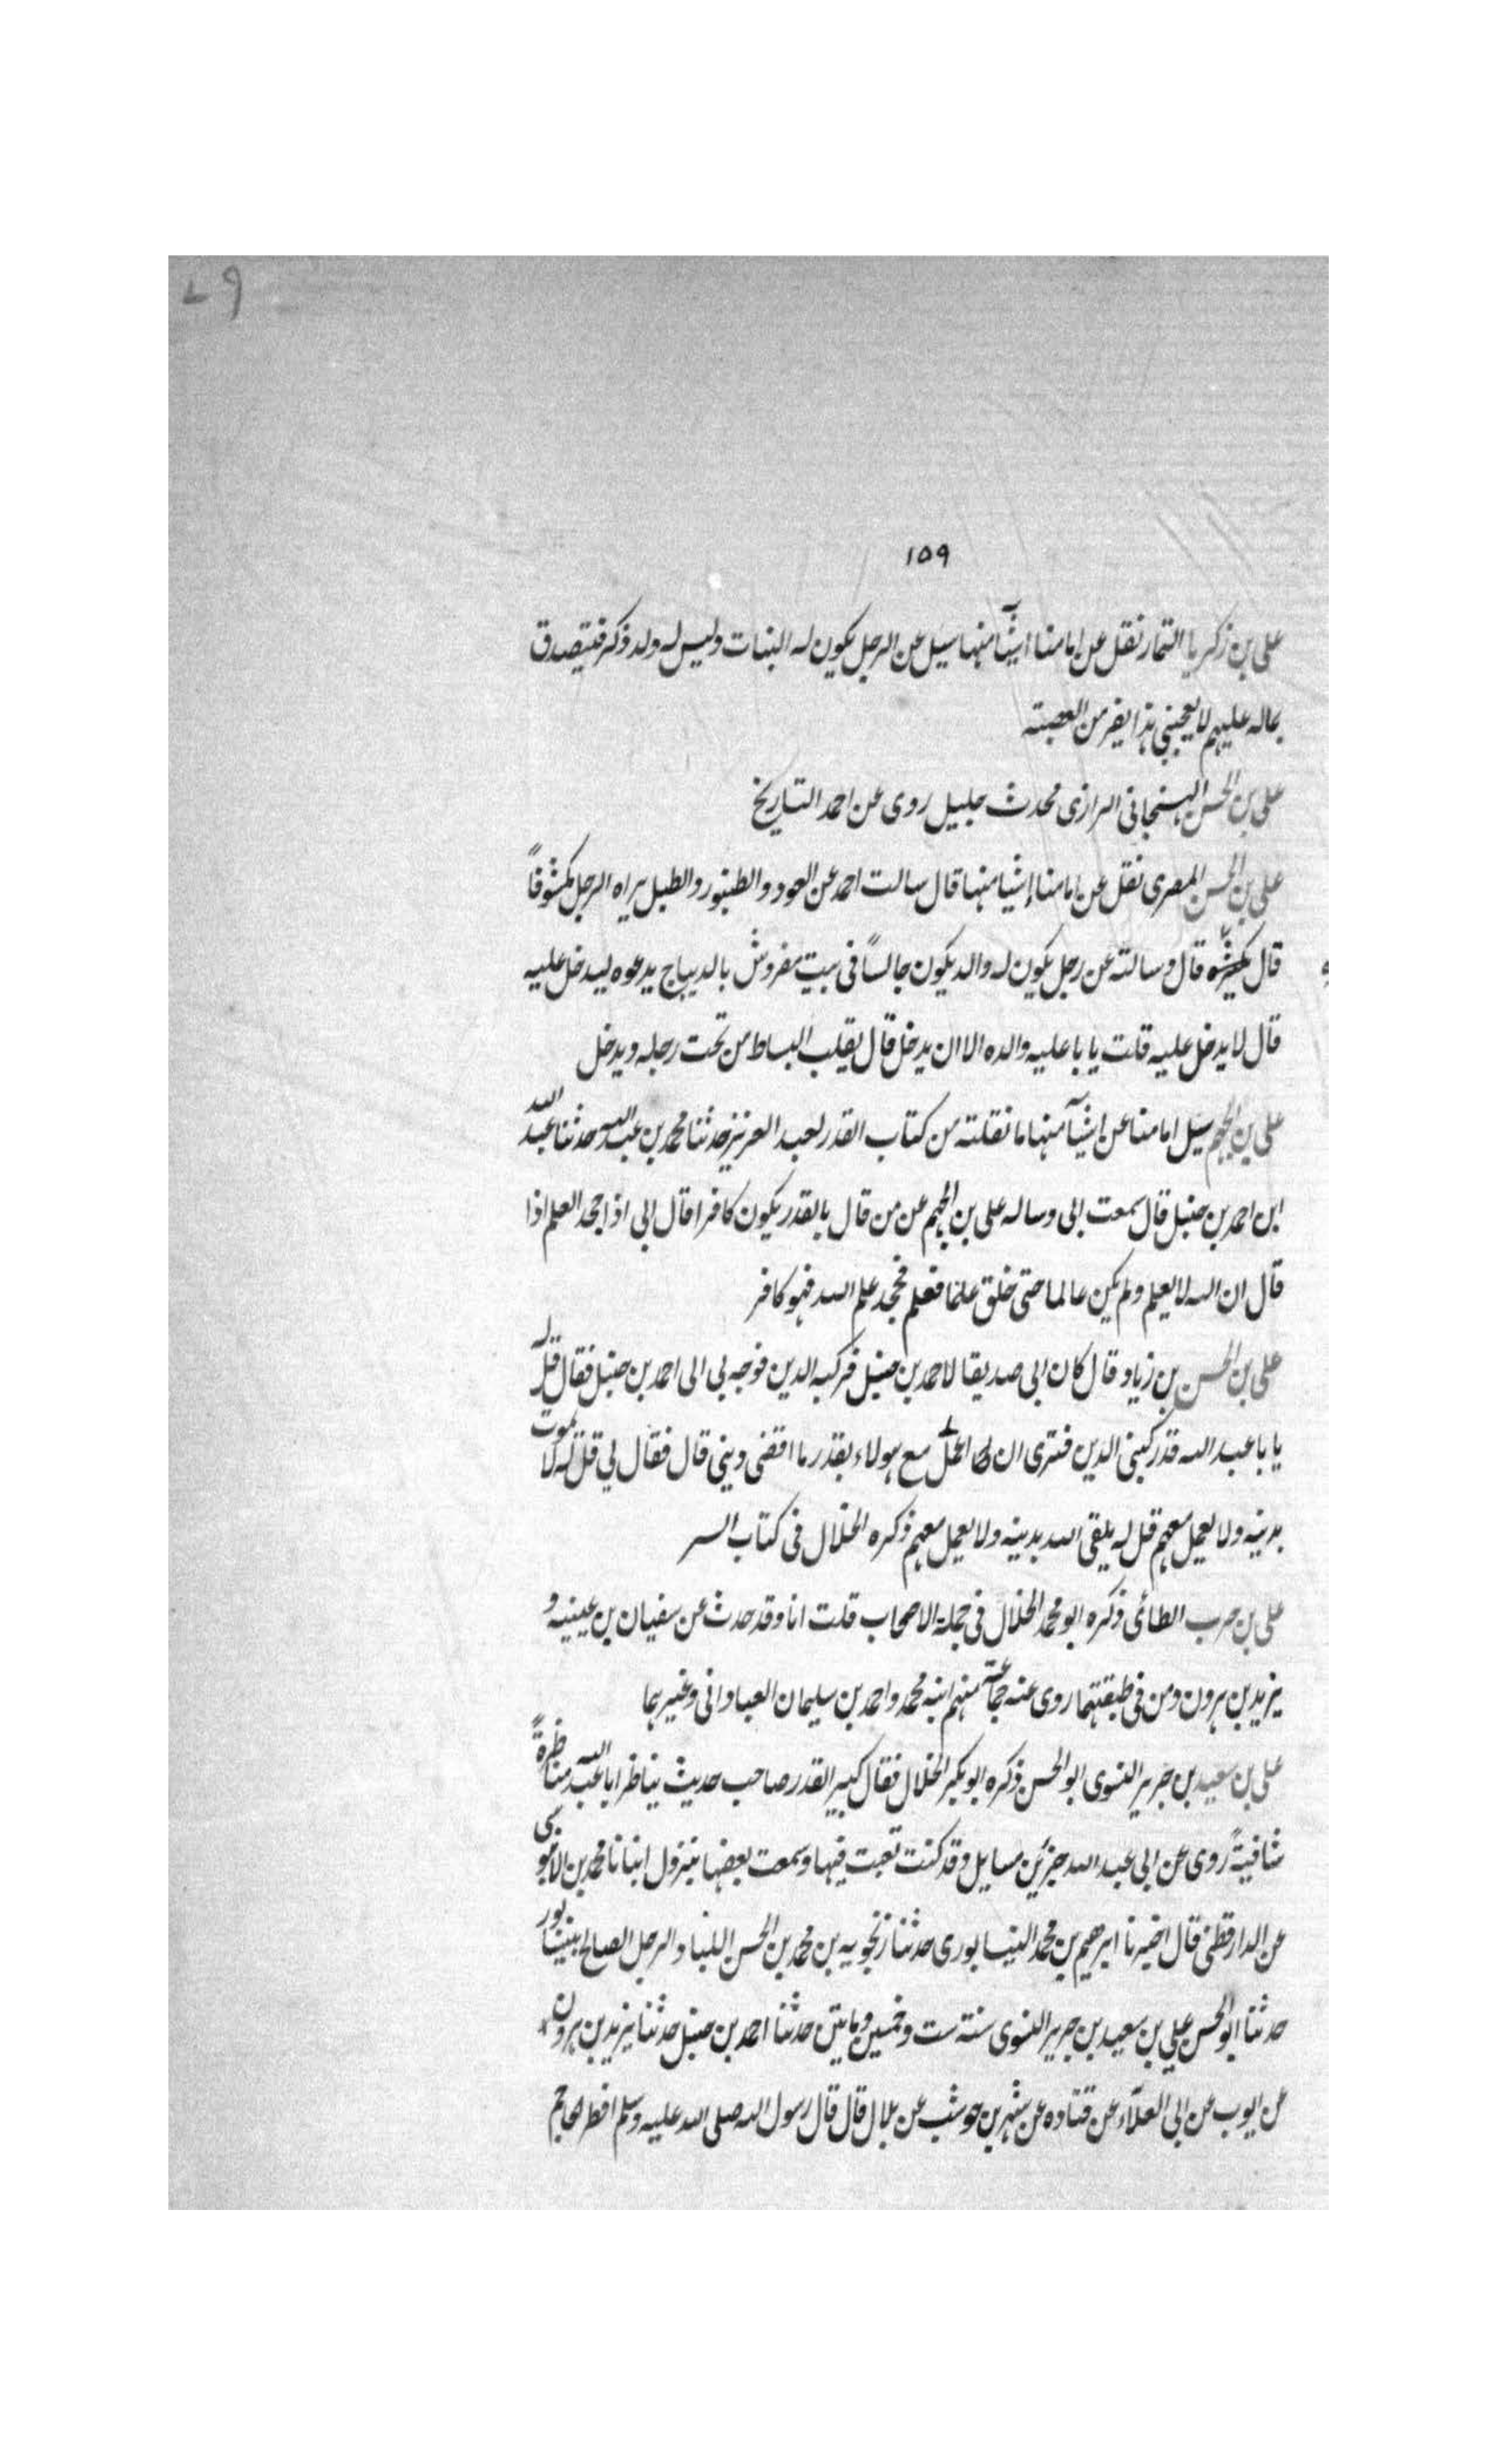 ٧٩
١٥٩
علی بن زکریا التمار نقل عن امامنا اشیآء منها سئل عن الرجل یکون له البنات ولیس له ولد ذکر فیتصدق
بماله علیهم لا یعجبنی هذا یفر من العصبته
علی بن الحسن الهسنجانی الرازی محدث جلیل روی عن احمد التاریخ
علی بن الحسن المصری نقل عن امامنا إشیا منها قال سالت احمد عن العود والطنبور والطبل یراه الرجل مکشوفاً
قال یکسره قال وسالته عن رجل یکون له والد یکون جالساً فی بیت مفروش بالدیباج یدعوه لیدخل علیه
قال لا یدخل علیه قلت یابا علیه والده الا ان یدخل قال یقلب البساط من تحت رجله ویدخل
علی بن الجهم سئل امامنا عن اشیآ منها ما نقلته من کتاب القدر لعبد العزیز حدثنا محمد بن عبد الله حدثنا عبد الله
ابن احمد بن حنبل قال سمعت ابی وساله علی بن الجهم عن من قال بالقدر یکون کافرا قال ابی اذا جحد العلم اذا
قال ان الله لا یعلم ولم یکن عالما حتی خلق علما فعلم فجحد علم الله فهو کافر
علی بن الحسن بن زیاد قال کان ابی صدیقا لاحمد بن حنبل فرکبه الدین فوجه بی الی احمد بن حنبل فقال قل له
یابا عبد الله قد رکبنی الدین فتری ان اعمل مع هولاء بقدر ما اقضی دینی قال فقال لی قل له لا یموت
بدینه ولا یعمل معهم قل له یلقی الله بدینه ولا یعمل معهم ذکره الخلال فی کتاب السر
علی بن حرب الطائی ذکره ابو محمد الخلال فی جملة الاصحاب قلت انا وقد حدث عن سفیان بن عیینه و
یزید بن هرون ومن فی طبقتهما روی عنه جماعة منهم ابنه محمد واحمد بن سلیمان العبادانی وغیرهما
علی بن سعید بن جریر النسوی ابو الحسن ذکره ابو بکر الخلال فقال کبیر القدر صاحب حدیث یناظر ابا عبد الله مناظرةً
شافیةً روی عن ابی عبد الله جزئین مسایل وقد کنت تعبت فیها وسمعت بعضها بنزول انبانا محمد بن الابنوسی
عن الدارقطنی قال اخبرنا ابرهیم بن محمد النیسابوری حدثنا زنجویه بن محمد بن الحسن اللباد الرجل الصالح بنیشاپور
حدثنا ابو الحسن علی بن سعید بن جریر النسوی سنة ست وخمسین ومایتین حدثنا احمد بن حنبل حدثنا یزید بن هرون
عن ایوب عن ابی العلآء عن قتاده عن شهر بن حوشب عن بلال قال قال رسول الله صلی الله علیه وسلم افطر الحاجم